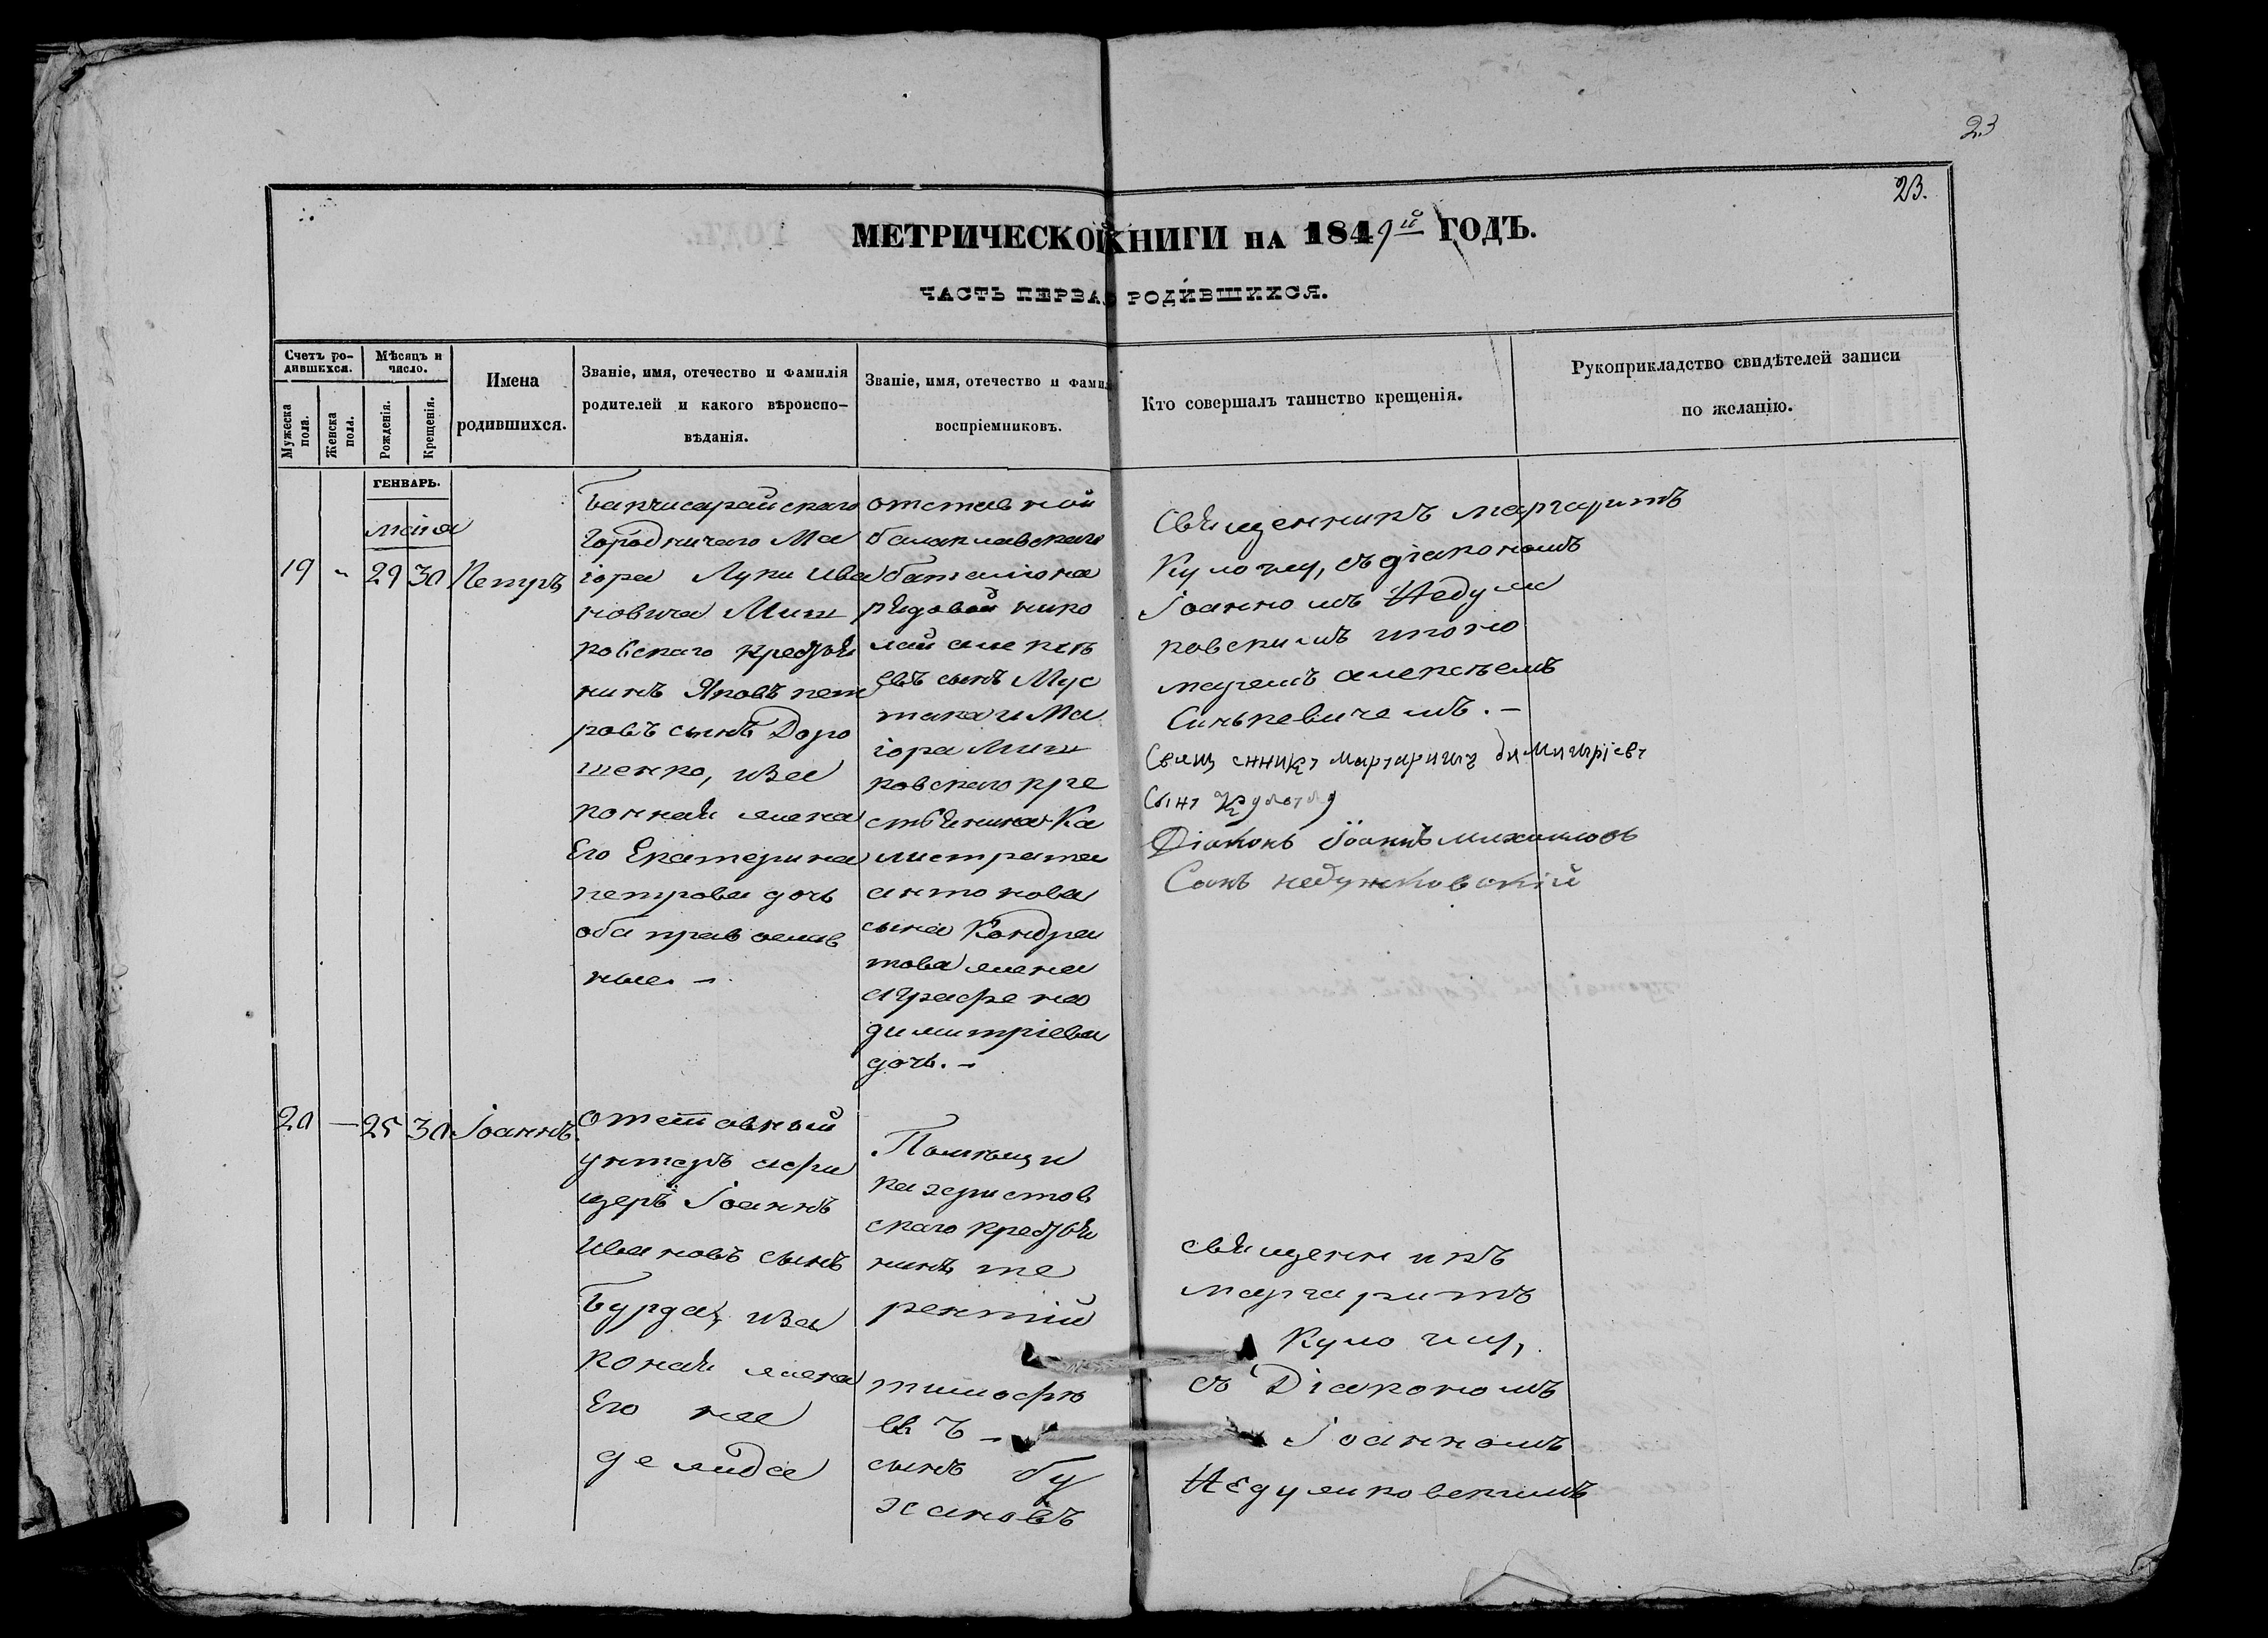 23
23.
МЕТРИЧЕСКОЙ КНИГИ НА 1849й ГОДЪ.
ЧАСТЬ ПЕРВАЯ РОДИВШИХСЯ.
Счетъ ро-
дившихся.
Мужеска пола.
Женска пола.
Мѣсяцъ и
число.
Рожденія.
Крещенія.
Имена
родившихся.
Званіе, имя, отечество и фамилія
родителей и какого вѣроиспо-
вѣданія.
Званіе, имя, отечество и фамил
воспріемниковъ.
Кто совершалъ таинство крещенія.
Рукоприкладство свидѣтелей записи
по желанію.
ГЕНВАРЬ.
маія
19 - 29 30 Петръ
Бакчисарайскаго
Городничаго Ма
іора Луки Ива
новича
ровскаго крестья
нинъ Яковъ пет
ровъ сынъ Доро
шенко, иза
конная жена
Его Екатерина
петрова дочь
оба православ
ные. –
отставной
балаклавскаго
баталіона
рядовой нико
лай алексѣ
евъ сынъ Мус
така и Ма
іора
ровскаго кре
стьянина Ка
листрата
антонова
сына Кондра
това жена
аграфена
димитріева
дочь. –
Священникъ маргаритъ
Кулогли, съ діакономъ
Іоанномъ Недуж
ковскимъ и поно
маремъ алексѣемъ
Синькевичемъ. –
Священникъ Маргаритъ димитріевъ
Сынъ Кулоглу
Діаконъ Іоаннъ михаиловъ
Сынъ недужковскій
20 — 25 30 Іоаннъ
отставный
унтеръ афи
церъ Іоаннъ
Ивановъ сынъ
Бурда, иза
коная жена
Его на
дежда
Помѣщи
ка христов
скаго крестья
нинъ те
рентій
тимофѣ
евъ –
сынъ бу
хановъ
священникъ
маргаритъ
Кулогли,
съ Діакономъ
Іоанномъ
Недужковскимъ